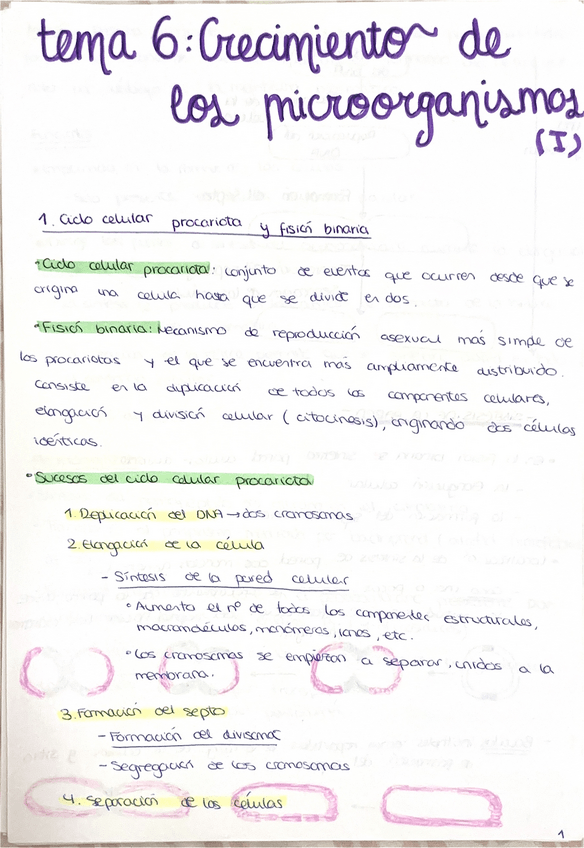 tema 6: Crecimiento de
los microorganismos
(I)
1. Ciclo celular procariota y fisión binaria
· Ciclo celular procariota: conjunto de eventos que ocurren desde que se
origina una celula hasa que se divide en dos.
· Fisión binaria: Mecanismo de reproducción asexual más simple de
los procariotas y el que se encuentra más ampliamente distribuido.
Consiste en la duplicación de todos los componentes celulares,
elongación y división celular (citocinosis), originando dos células
idénticas.
· Sucesos del ciclo celular procariota
1. Deplicación del DNA → dos cromosomas
2. Elongación de la célula
- Síntesis de la pared celular
· Aumento el nº de todos los componentes estructurales,
macromoléculas, monómeros, iones, etc.
· Los cromosomas se empiezan a separar, unidos a la
membrana.
3. Formación del septo
- Formación del divisoma
- Segregación de los cromosomas
4. Separación de las células
1